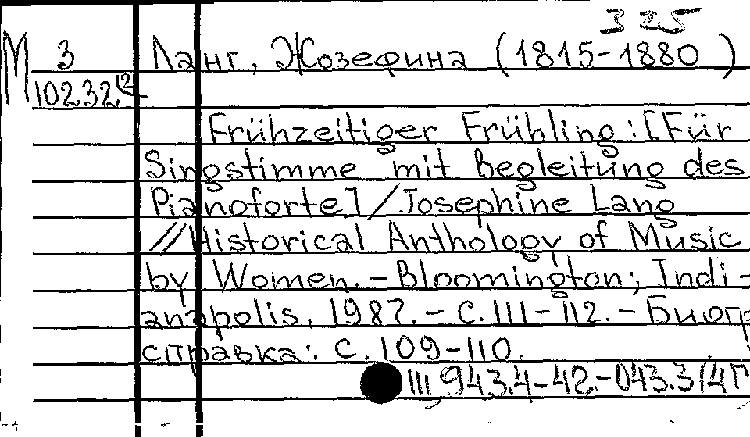 325
М 3 Ланг, Жозефина (1815-1880)
10232
Frühzeitiger Frühling: [Für
Singstimme mit Begleitung des
Pianoforte] / Josephine Lang
// Historical Anthology of Music
by Women. - Bloomington; Indi-
anapolis, 1987. - С. 111-112. - Биогр
справка: с. 109-110.
Щ943.4-42.-043.3/4Г